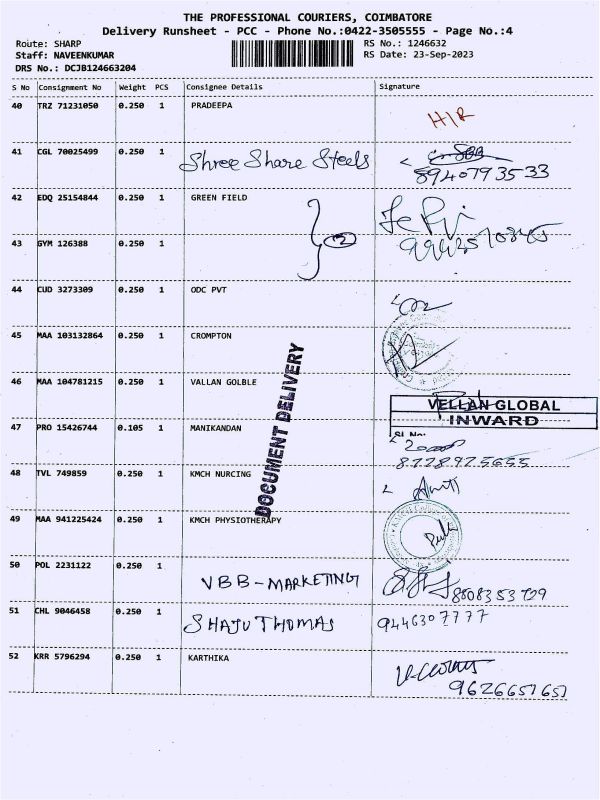 THE PROFESSIONAL COURIERS, COIMBATORE
Delivery Runsheet - PCC - Phone No.:0422-3505555 - Page No.:4
Route: SHARP
Staff: NAVEENKUMAR
DRS No.: DCJB124663204
RS No.: 1246632
RS Date: 23-Sep-2023
S No Consignment No Weight PCS Consignee Details Signature
40 TRZ 71231050 0.250 1 PRADEEPA H/R
41 CGL 70025499 0.250 1 Shree Share Steels
8940793533
42 EDQ 25154844 0.250 1 GREEN FIELD
43 GYM 126388 0.250 1
44 CUD 3273309 0.250 1 ODC PVT
45 MAA 103132864 0.250 1 CROMPTON
46 MAA 104781215 0.250 1 VALLAN GOLBLE
VELLAN GLOBAL
INWARD
Sl No:
47 PRO 15426744 0.105 1 MANIKANDAN
48 TVL 749859 0.250 1 KMCH NURCING
49 MAA 941225424 0.250 1 KMCH PHYSIOTHERAPY
DOCUMENT DELIVERY
50 POL 2231122 0.250 1 VBB-MARKETING
51 CHL 9046458 0.250 1 SHAJU THOMAS 9446307777
52 KRR 5796294 0.250 1 KARTHIKA
9626657657